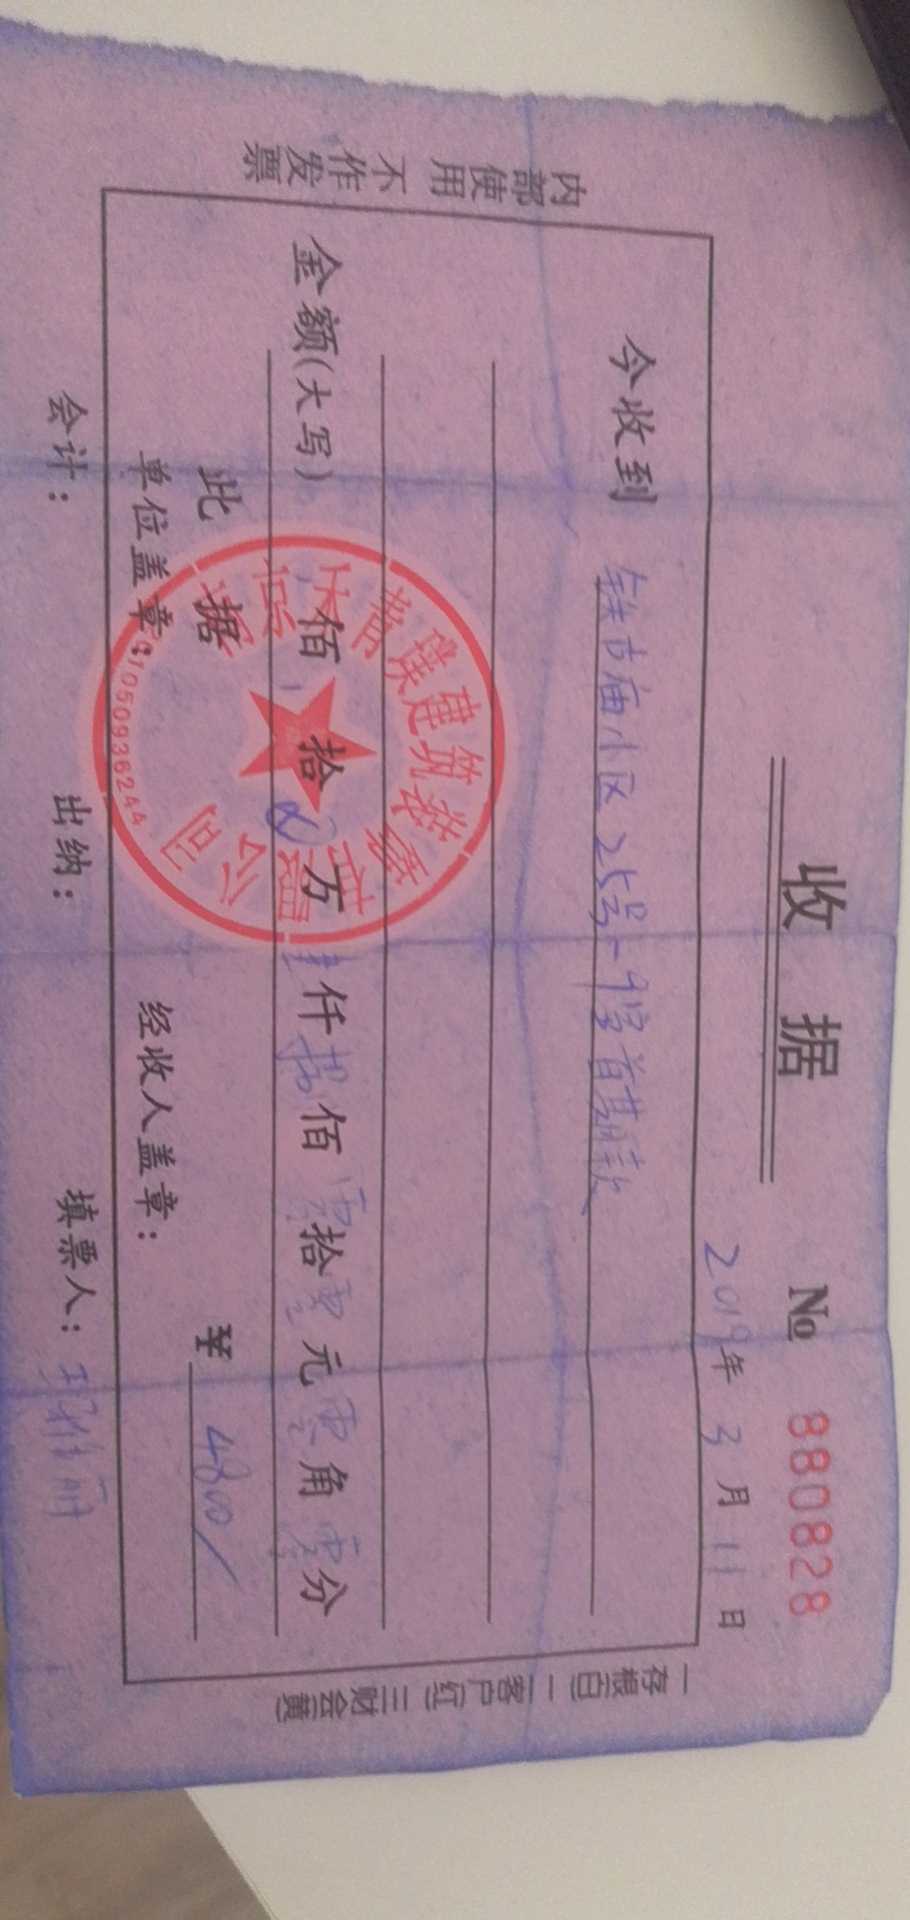 收据
№ 880828
2019年3月11日
今收到
小区25号
首期款
金额(大写) 佰 拾 万 肆仟捌佰零拾零元零角零分
此据
¥ 4800/
单位盖章:
经收人盖章:
会计: 出纳: 填票人:
内部使用 不作发票
一存根(白) 二客户(红) 三财会(黄)
建筑装
公司